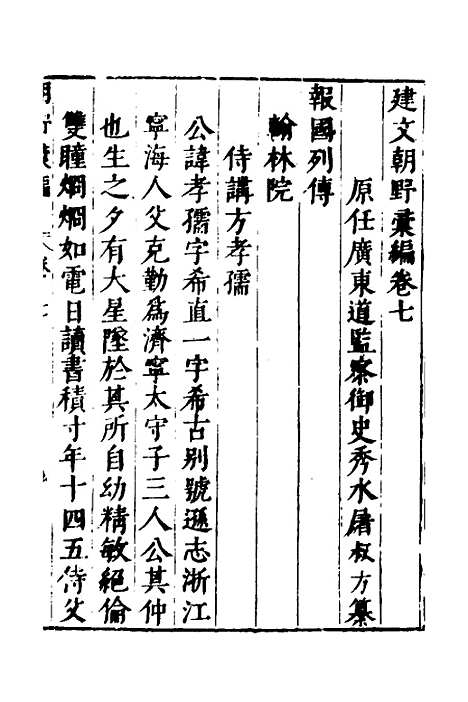 建文朝野彙編卷七
原任廣東道監察御史秀水屠叔方纂
報國列傳
翰林院
侍講方孝孺
公諱孝孺字希直一字希古别號遜志浙江
寧海人父克勤爲濟寧太守子三人公其仲
也生之夕有大星墜於其所自幼精敏絕倫
雙瞳烱烱如電日讀書積寸年十四五侍父